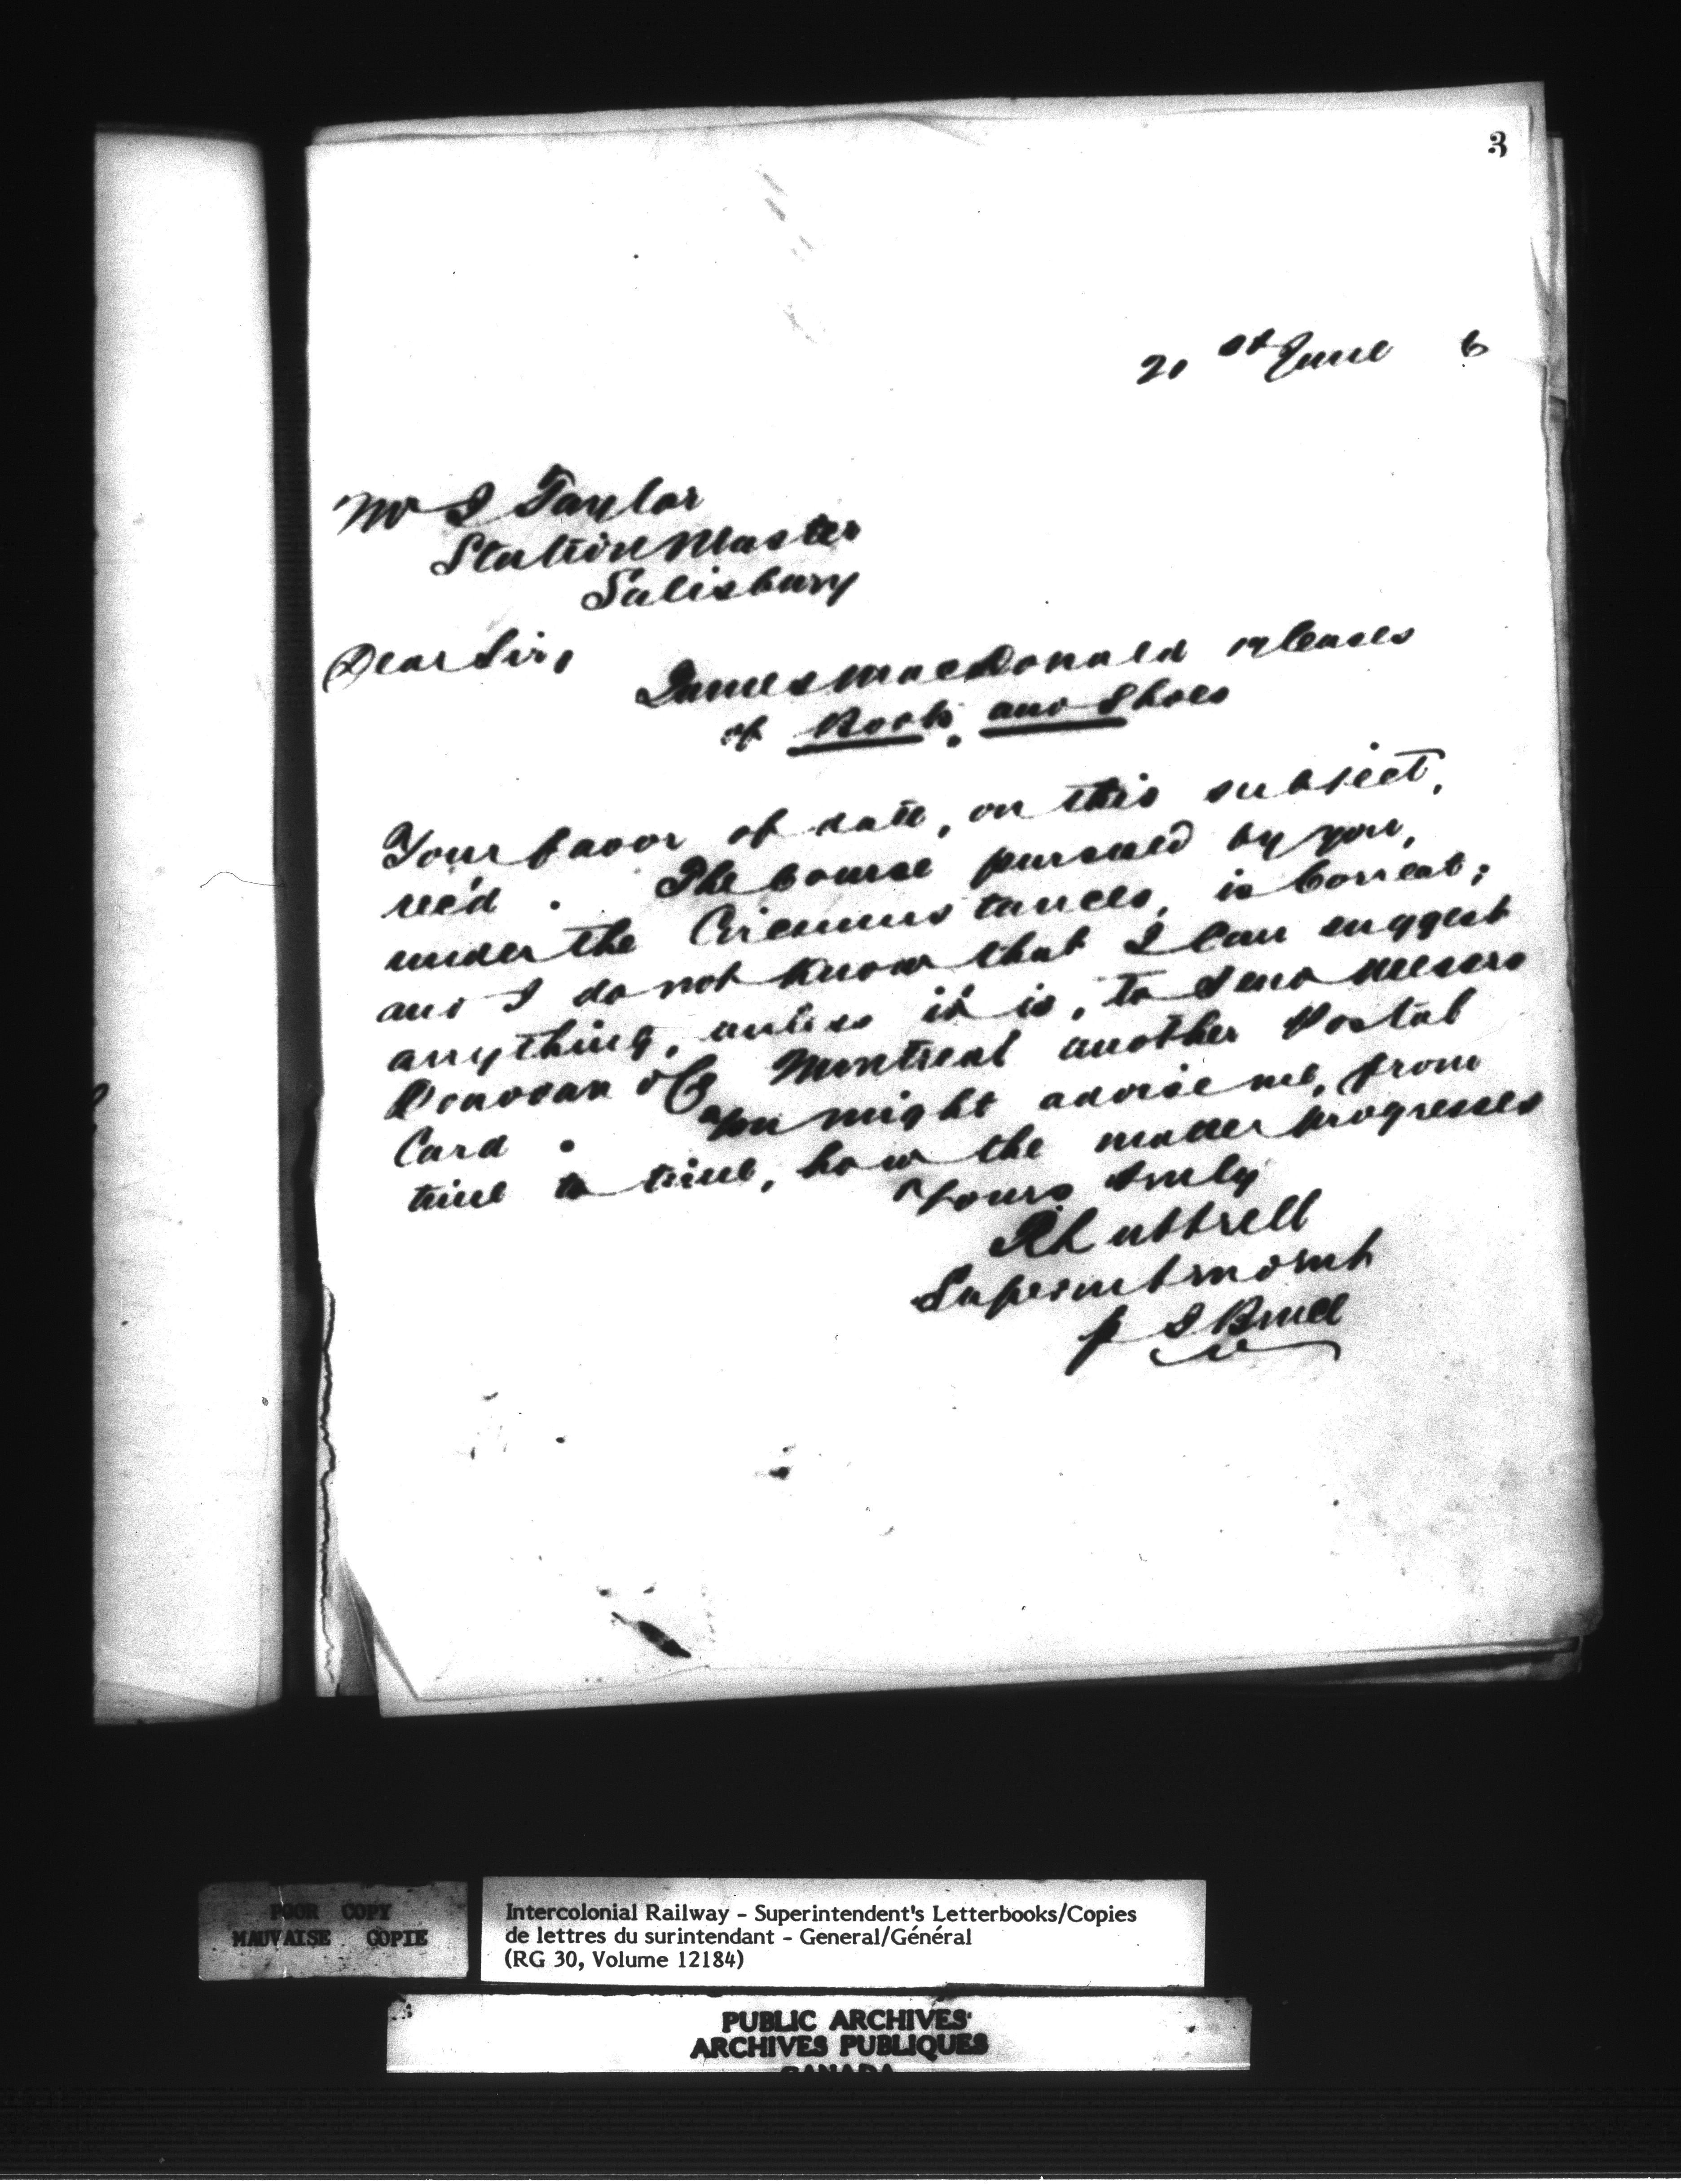 3
21st June 6
Mr I Taylor
Station Master
Salisbury
Dear Sir,
James MacDonald
of Boots and Shoes
Your favor of date, on this subject,
rec'd. The course pursued by you,
under the Circumstances, is Correct;
and I do not Know that I Can suggest
anything, unless it is, to send Messrs
Donovan & Co Montreal another Postal
Card. You might advise me, from
time to time, how the matter progresses
Yours truly
R Luttrell
Superintendent
p
POOR COPY
MAUVAISE COPIE
Intercolonial Railway - Superintendent's Letterbooks/Copies
de lettres du surintendant - General/Général
(RG 30, Volume 12184)
PUBLIC ARCHIVES
ARCHIVES PUBLIQUES
CANADA